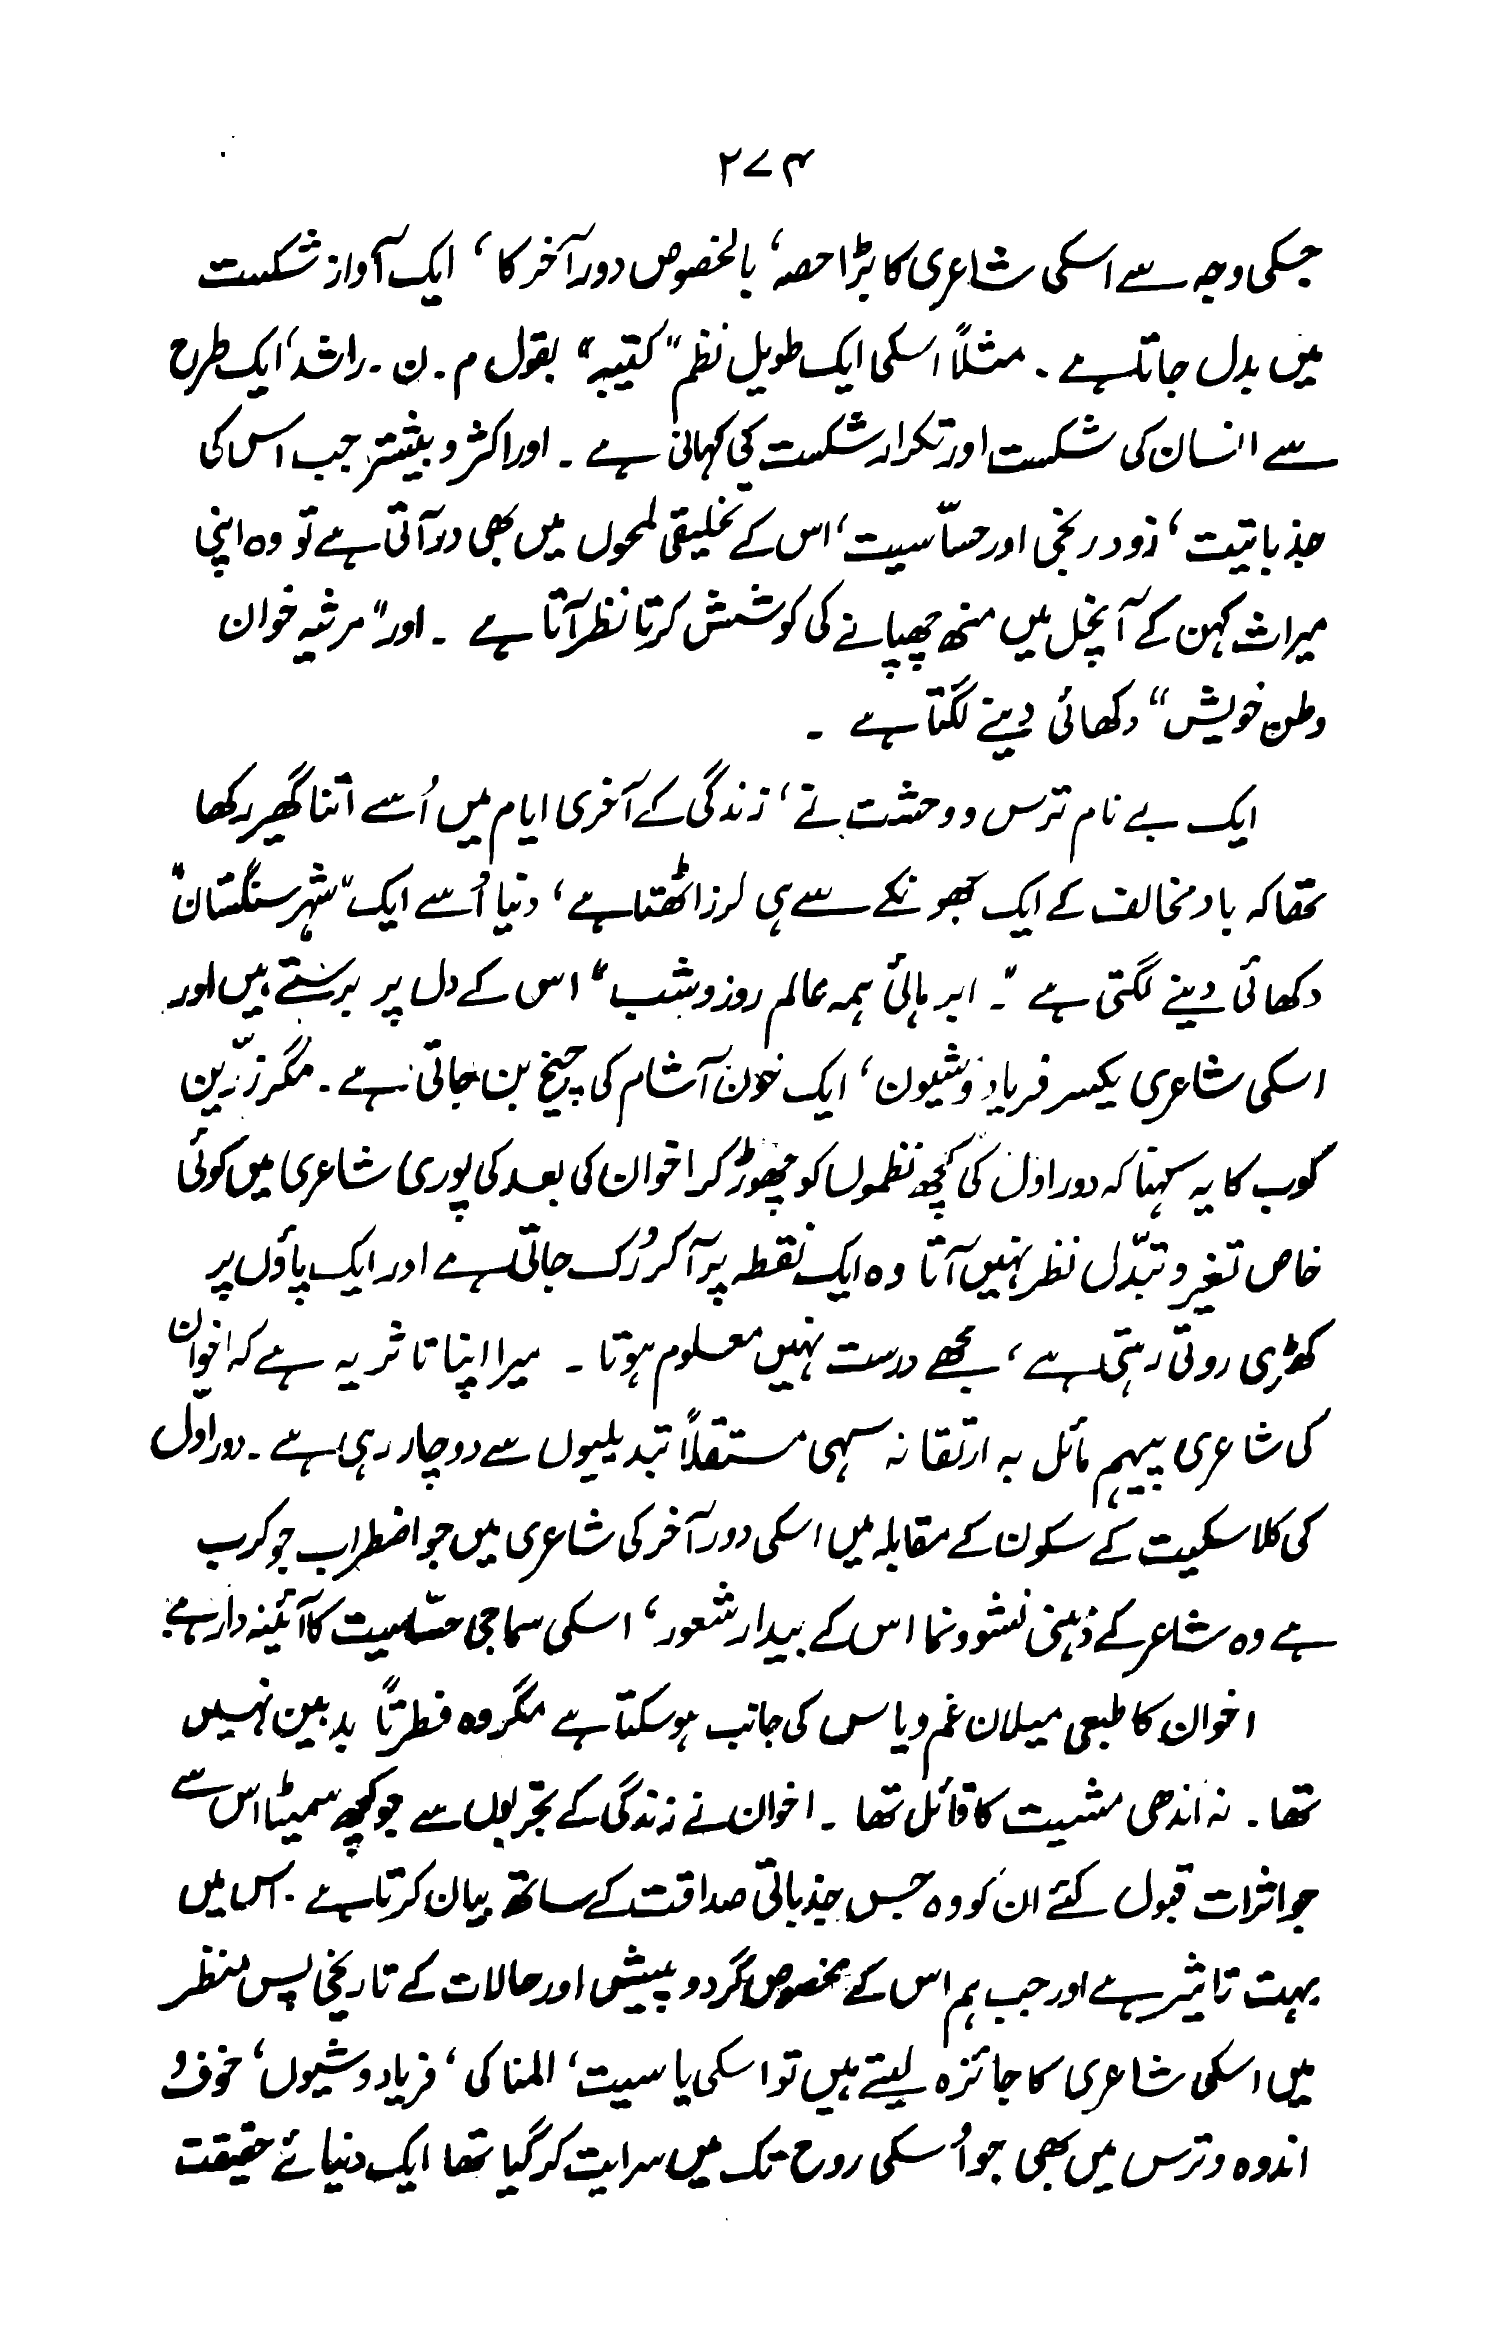 ۲۷۴
جسکی وجہ سے اسکی شاعری کا بڑا حصہ، بالخصوص دور آخر کا، ایک آواز شکست
میں بدل جاتا ہے۔ مثلاً اسکی ایک طویل نظم "کتیبہ" بقول م۔ن۔راشد، ایک طرح
سے انسان کی شکست اور تکرار شکست کی کہانی ہے۔ اور اکثر و بیشتر جب اس کی
جذباتیت، زود رنجی اور حسّاسیت، اس کے تخلیقی لمحوں میں بھی در آتی ہے تو وہ اپنی
میراث کہن کے آنچل میں منھ چھپانے کی کوشش کرتا نظر آتا ہے۔ اور "مرثیہ خوان
وطن خویش" دکھائی دینے لگتا ہے۔
ایک بے نام ترس و وحشت نے، زندگی کے آخری ایام میں اُسے اتنا گھیر رکھا
تھا کہ باد مخالف کے ایک جھونکے سے ہی لرز اٹھتا ہے، دنیا اُسے ایک "شہر سنگستان"
دکھائی دینے لگتی ہے۔ "ابر ہائی ہمہ عالم روز و شب" اس کے دل پر برستے ہیں اور
اسکی شاعری یکسر فریاد و شیون، ایک خون آشام کی چیخ بن جاتی ہے۔ مگر زرّین
کوب کا یہ کہنا کہ دور اول کی کچھ نظموں کو چھوڑ کر اخوان کی بعد کی پوری شاعری میں کوئی
خاص تغیر و تبدّل نظر نہیں آتا وہ ایک نقطہ پر آکر رُک جاتی ہے اور ایک پاؤں پر
کھڑی روتی رہتی ہے، مجھے درست نہیں معلوم ہوتا۔ میرا اپنا تاثر یہ ہے کہ اخوان
کی شاعری پیہم مائل بہ ارتقا نہ سہی مستقلاً تبدیلیوں سے دوچار رہی ہے۔ دور اوّل
کی کلاسکیت کے سکون کے مقابلہ میں اسکی دور آخر کی شاعری میں جو اضطراب جو کرب
ہے وہ شاعر کے ذہنی نشوونما اس کے بیدار شعور، اسکی سماجی حسّاسیت کا آئینہ دار ہے۔
اخوان کا طبعی میلان غم و یاس کی جانب ہو سکتا ہے مگر وہ فطرتاً بدبین نہیں
تھا۔ نہ اندھی مشیت کا قائل تھا۔ اخوان نے زندگی کے تجربوں سے جو کچھ سمیٹا اس سے
جو اثرات قبول کئے ان کو وہ جس جذباتی صداقت کے ساتھ بیان کرتا ہے۔ اس میں
بہت تاثیر ہے اور جب ہم اس کے مخصوص گردو پیش اور حالات کے تاریخی پس منظر
میں اسکی شاعری کا جائزہ لیتے ہیں تو اسکی یاسیت، المناکی، فریاد و شیوں، خوف و
اندوہ و ترس میں بھی جو اُسکی روح تک میں سرایت کر گیا تھا ایک دنیائے حقیقت